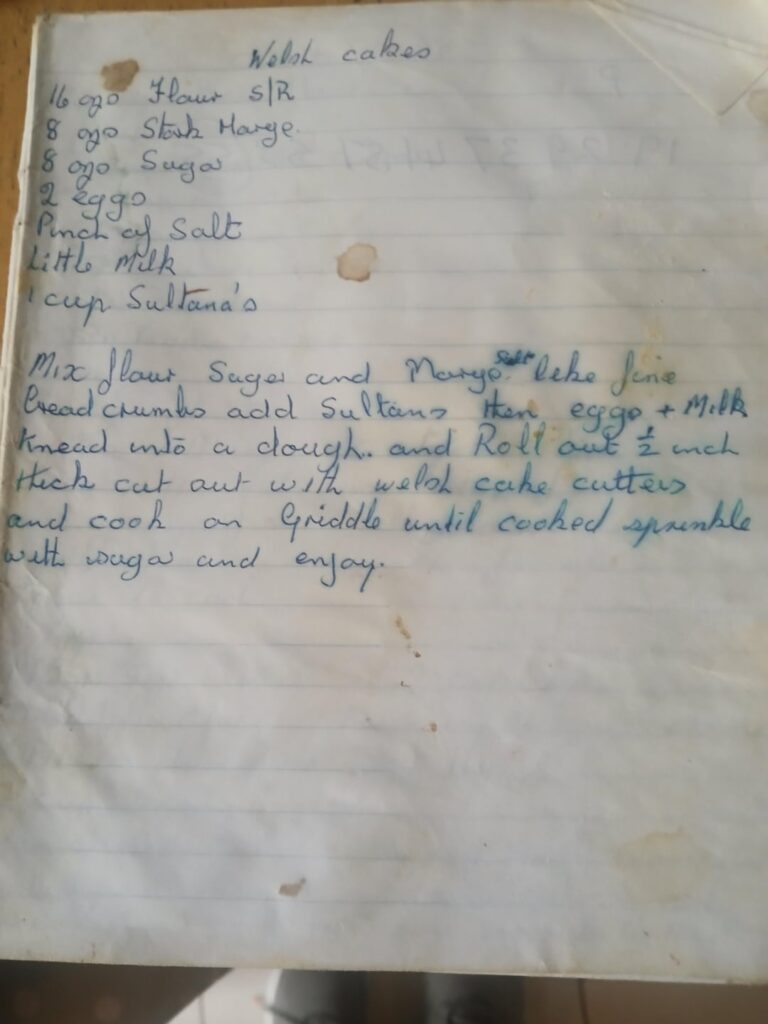 Welsh cakes
16 ozs Flour S/R
8 ozs Stork Marge.
8 ozs. Sugar
2 eggs
Pinch of Salt
Little Milk
1 cup Sultana's
Mix flour Sugar and Marge. Salt like fine
breadcrumbs add Sultans then eggs + Milk
Knead into a dough.. and Roll out ½ inch
thick cut out with welsh cake cutters
and cook on Griddle until cooked sprinkle
with sugar and enjoy.